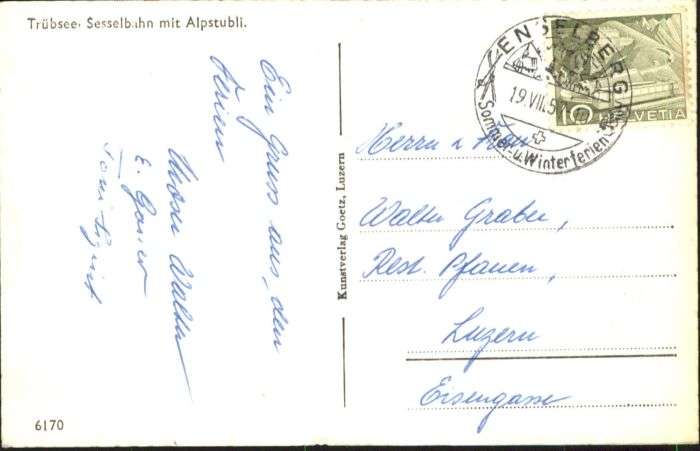 Trübsee. Sesselbahn mit Alpstubli.
Ein Gruss aus den
Ferien
Moser Walter
E.
ENGELBERG
19.VII.5
Sommer-u.Winterferien
10 HELVETIA
Herrn u. Frau
Walter Graber,
Rest. Pfauen,
Luzern
Eisengasse
Kunstverlag Goetz, Luzern
6170